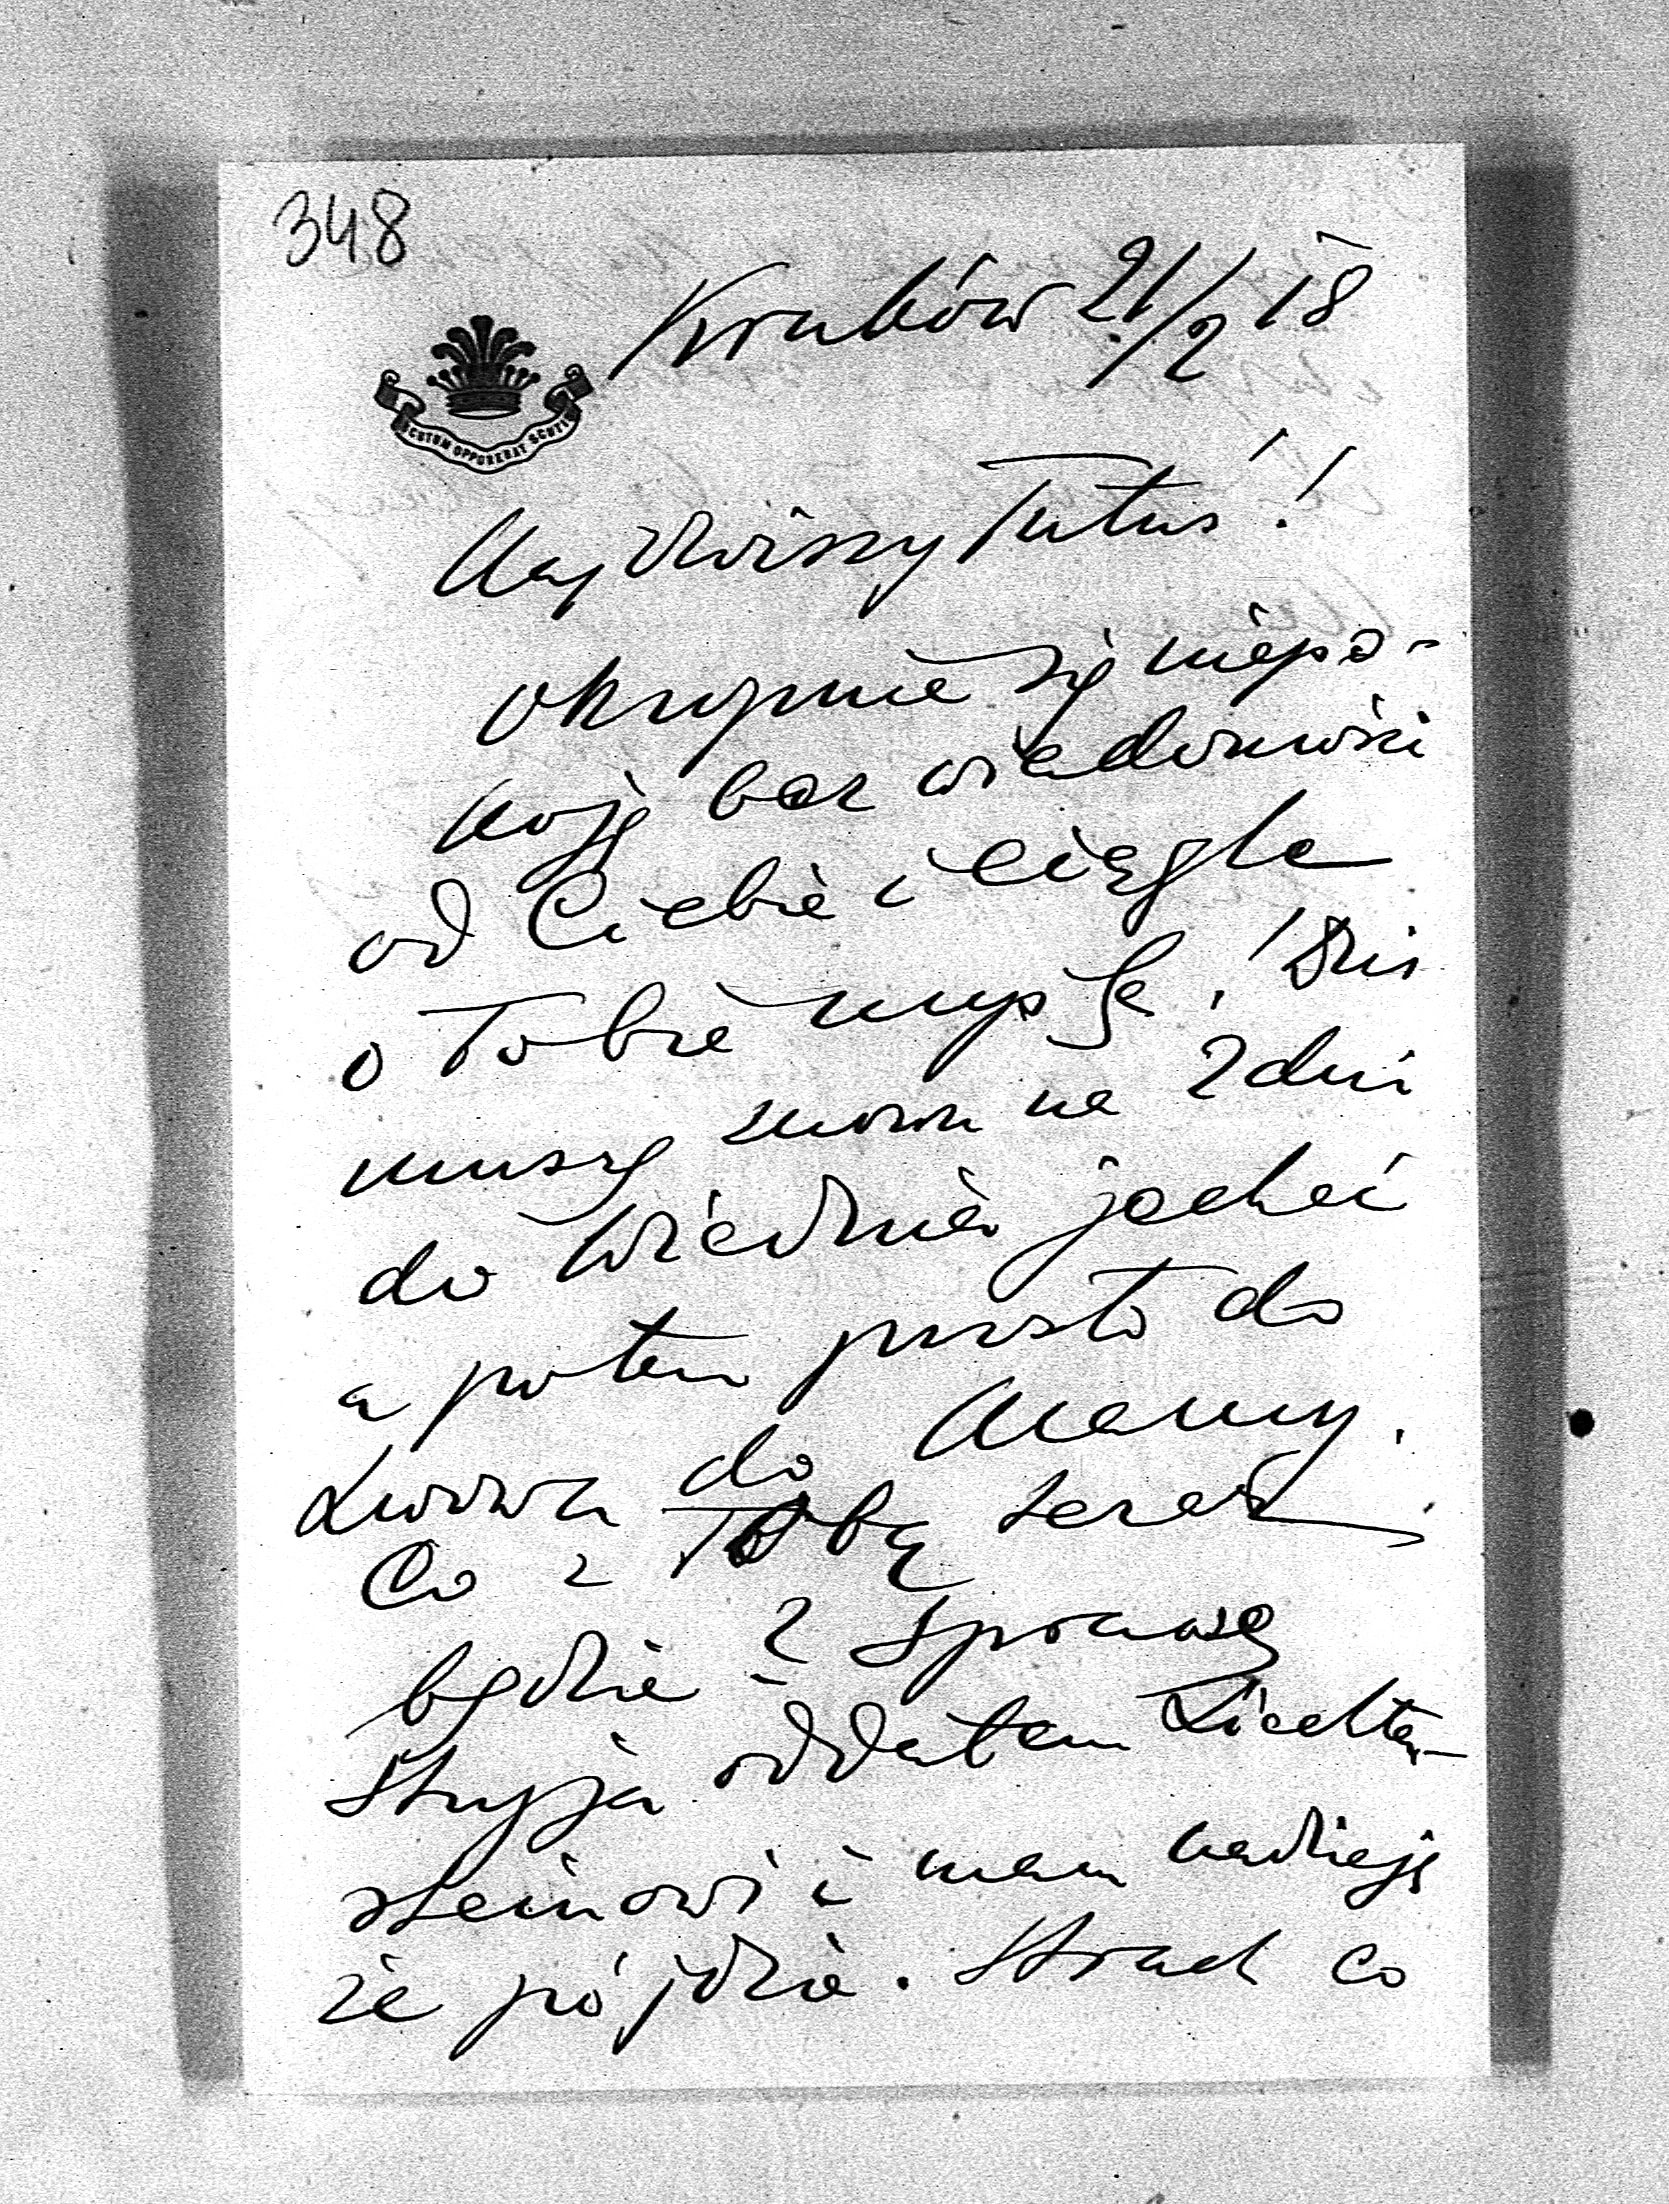 348
Kraków 21/2 18
SCUTUM OPPONEBAT SCUTIS
Najdroższy Tatuś!
Okropnie się niepo-
koję bez wiadomości
od Ciebie i ciągle
o Tobie myślę! Dziś
muszę znowu na 2 dni
do Wiednia jechać
a potem prosto do
Lwowa do Mamy.
Co z Tobą teraz
będzie? Sprawę
Stryja oddałem Liechten-
steinowi i mam nadzieję
że pójdzie. Strach co